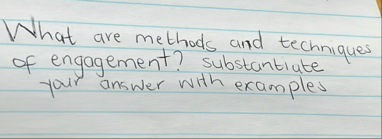 What are methods and techniques
of engagement? substantiate
your answer with examples